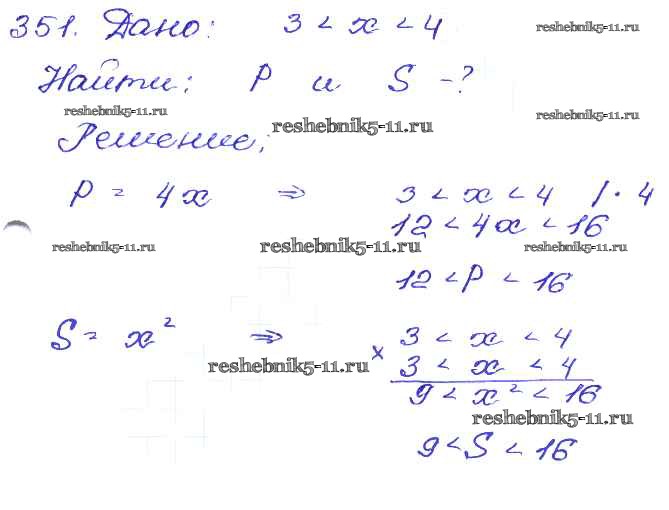 351. Дано: 3 < x < 4
reshebnik5-11.ru
Найти: P и S -?
reshebnik5-11.ru
reshebnik5-11.ru
reshebnik5-11.ru
Решение;
P = 4x ⇒ 3 < x < 4 / · 4
12 < 4x < 16
reshebnik5-11.ru reshebnik5-11.ru reshebnik5-11.ru
12 < P < 16
S = x² ⇒ × 3 < x < 4
3 < x < 4
reshebnik5-11.ru
9 < x² < 16
reshebnik5-11.ru
9 < S < 16